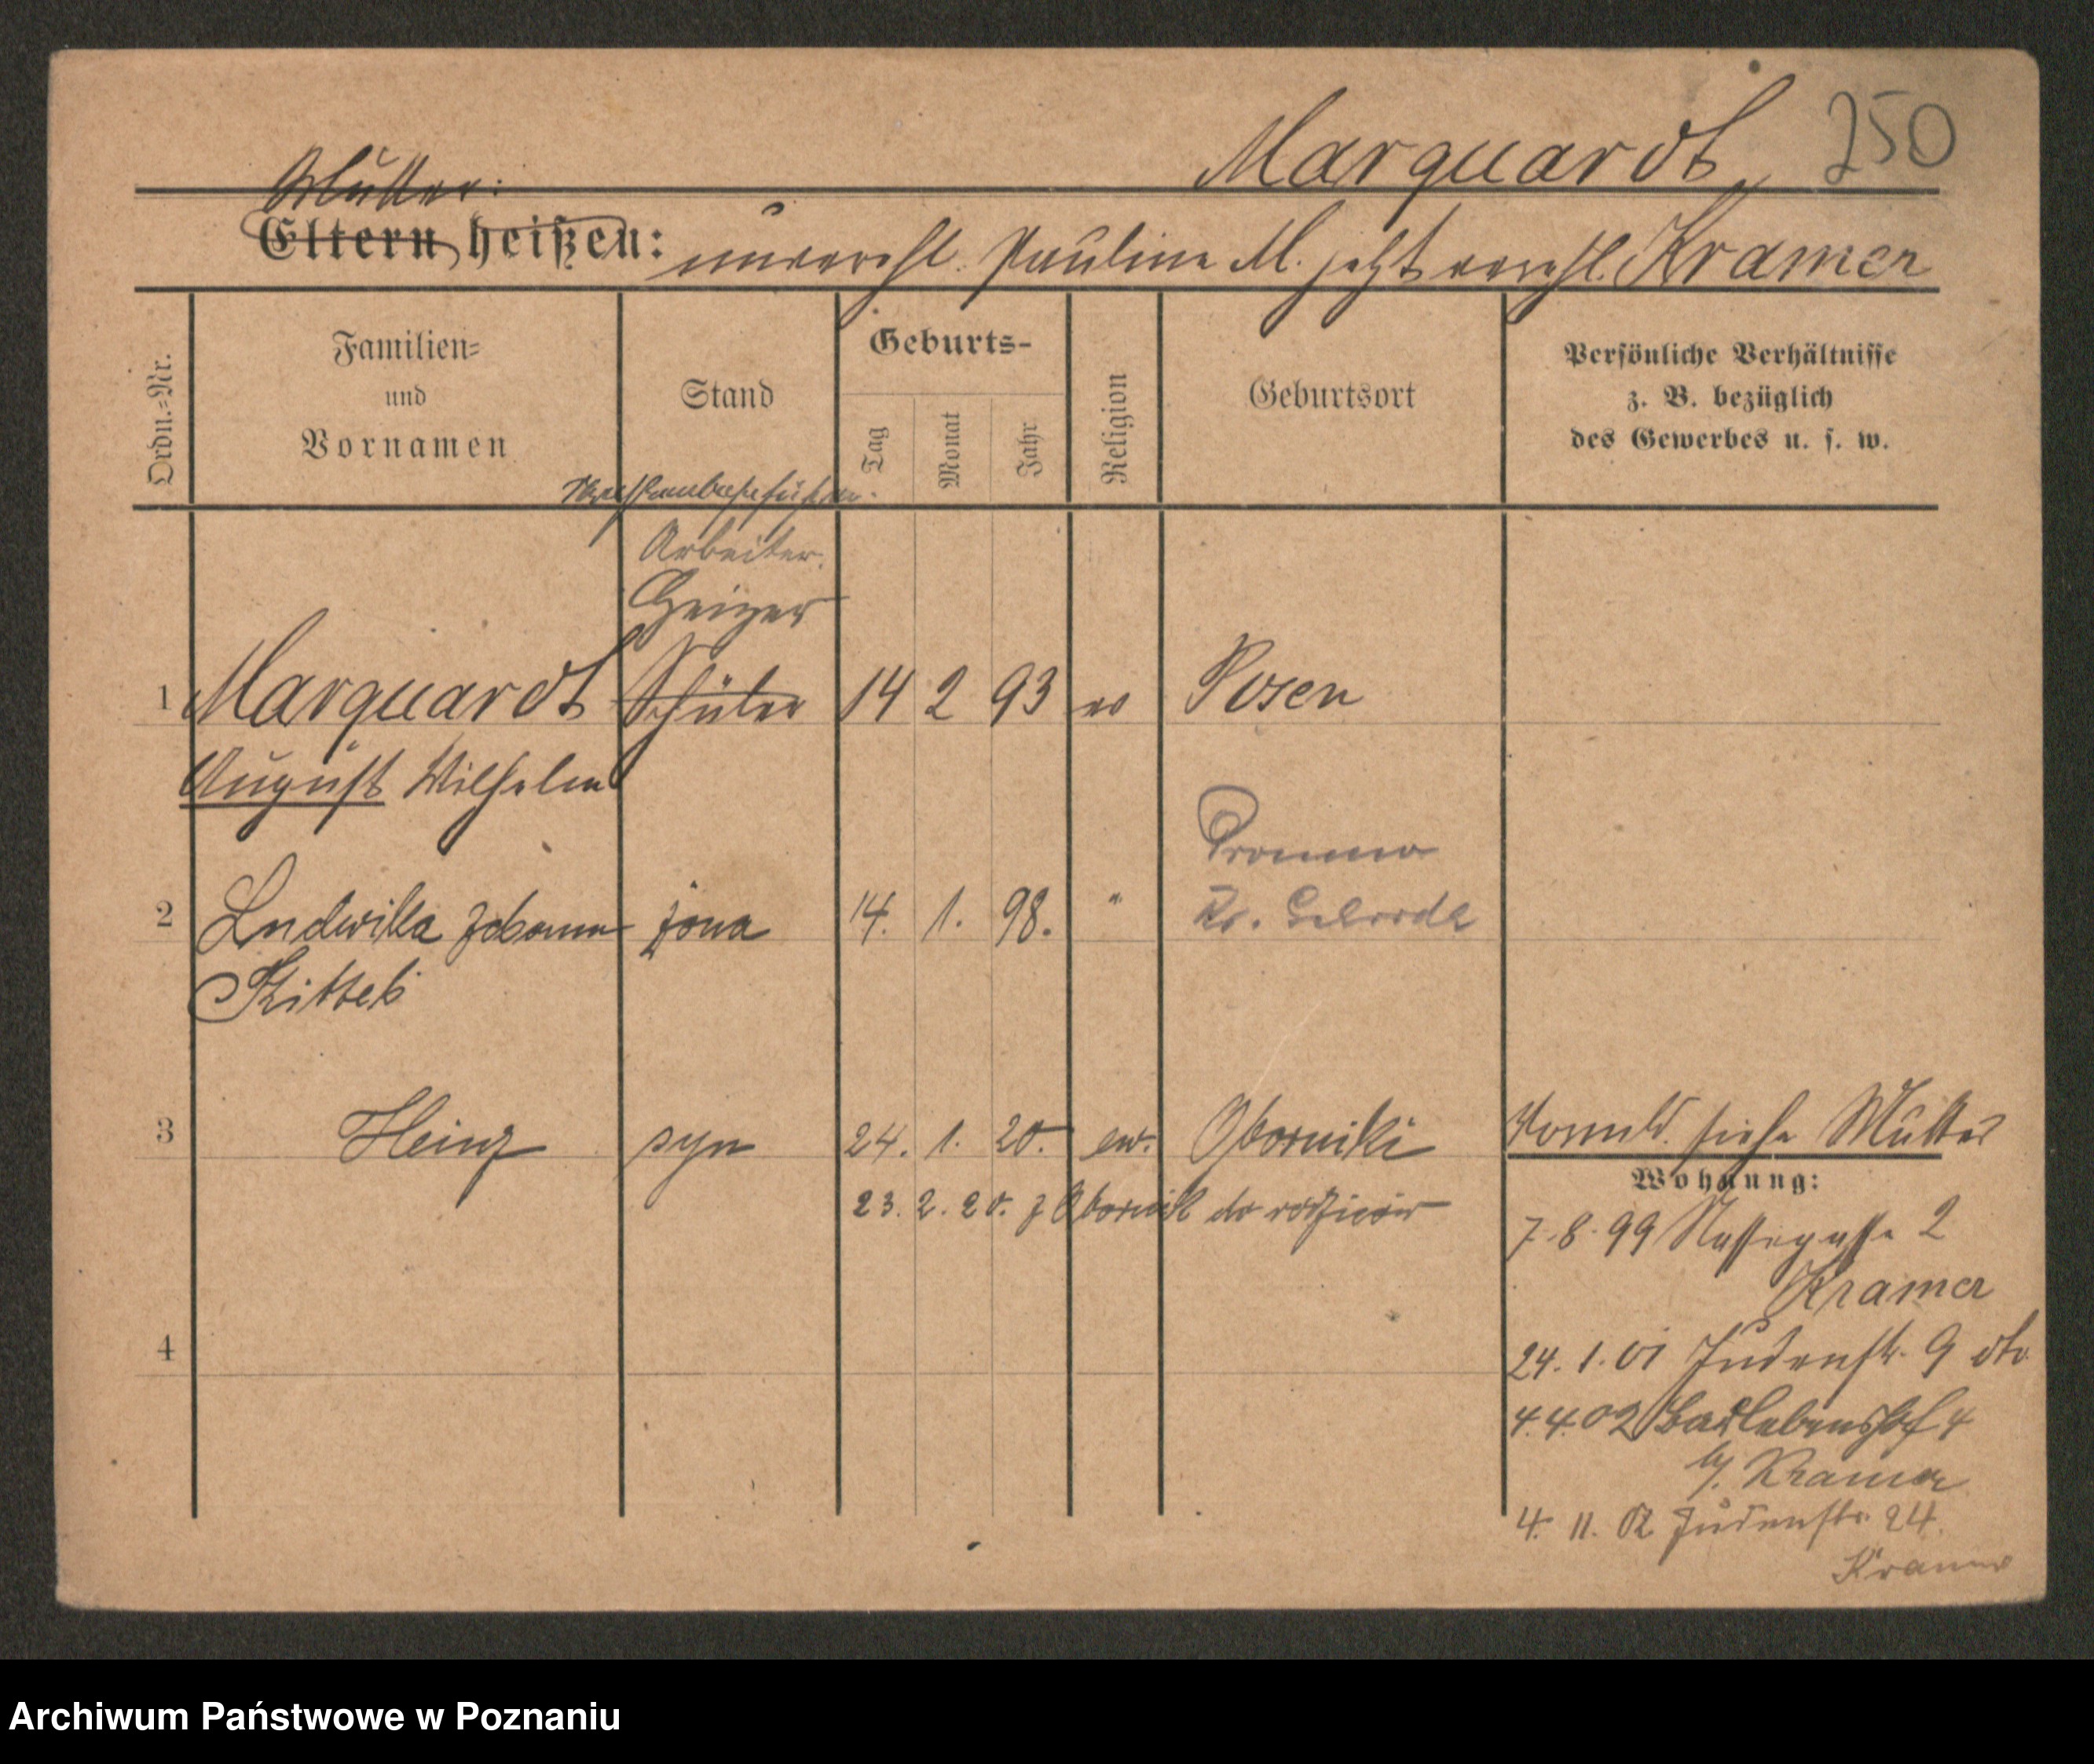 Marquardt 250
Mutter:
Eltern heißen: unverehl. Pauline M. jetzt verehl. Kramer
Ordn.=Nr.
Familien=
und
Vornamen
Stand
Geburts-
Tag
Monat
Jahr
Religion
Geburtsort
Persönliche Verhältnisse
z. B. bezüglich
des Gewerbes u. s. w.
Arbeiter.
Heizer
1 Marquardt Schüler 14 2 93 ev Posen
August Wilhelm
2 Ludwika żona 14. 1. 98. "
Kittel
3 Heinz syn 24. 1. 20. ew. Oborniki
23. 2. 20. z Obornik do rodziców
siehe Mutter
Wohnung:
7.8.99 Nassegasse 2
Kramer
24.1.01 Judenstr. 9 dto
4.4.02 4
b/. Kramer
4. 11. 02 Judenstr. 24.
Kramer
4
Archiwum Państwowe w Poznaniu